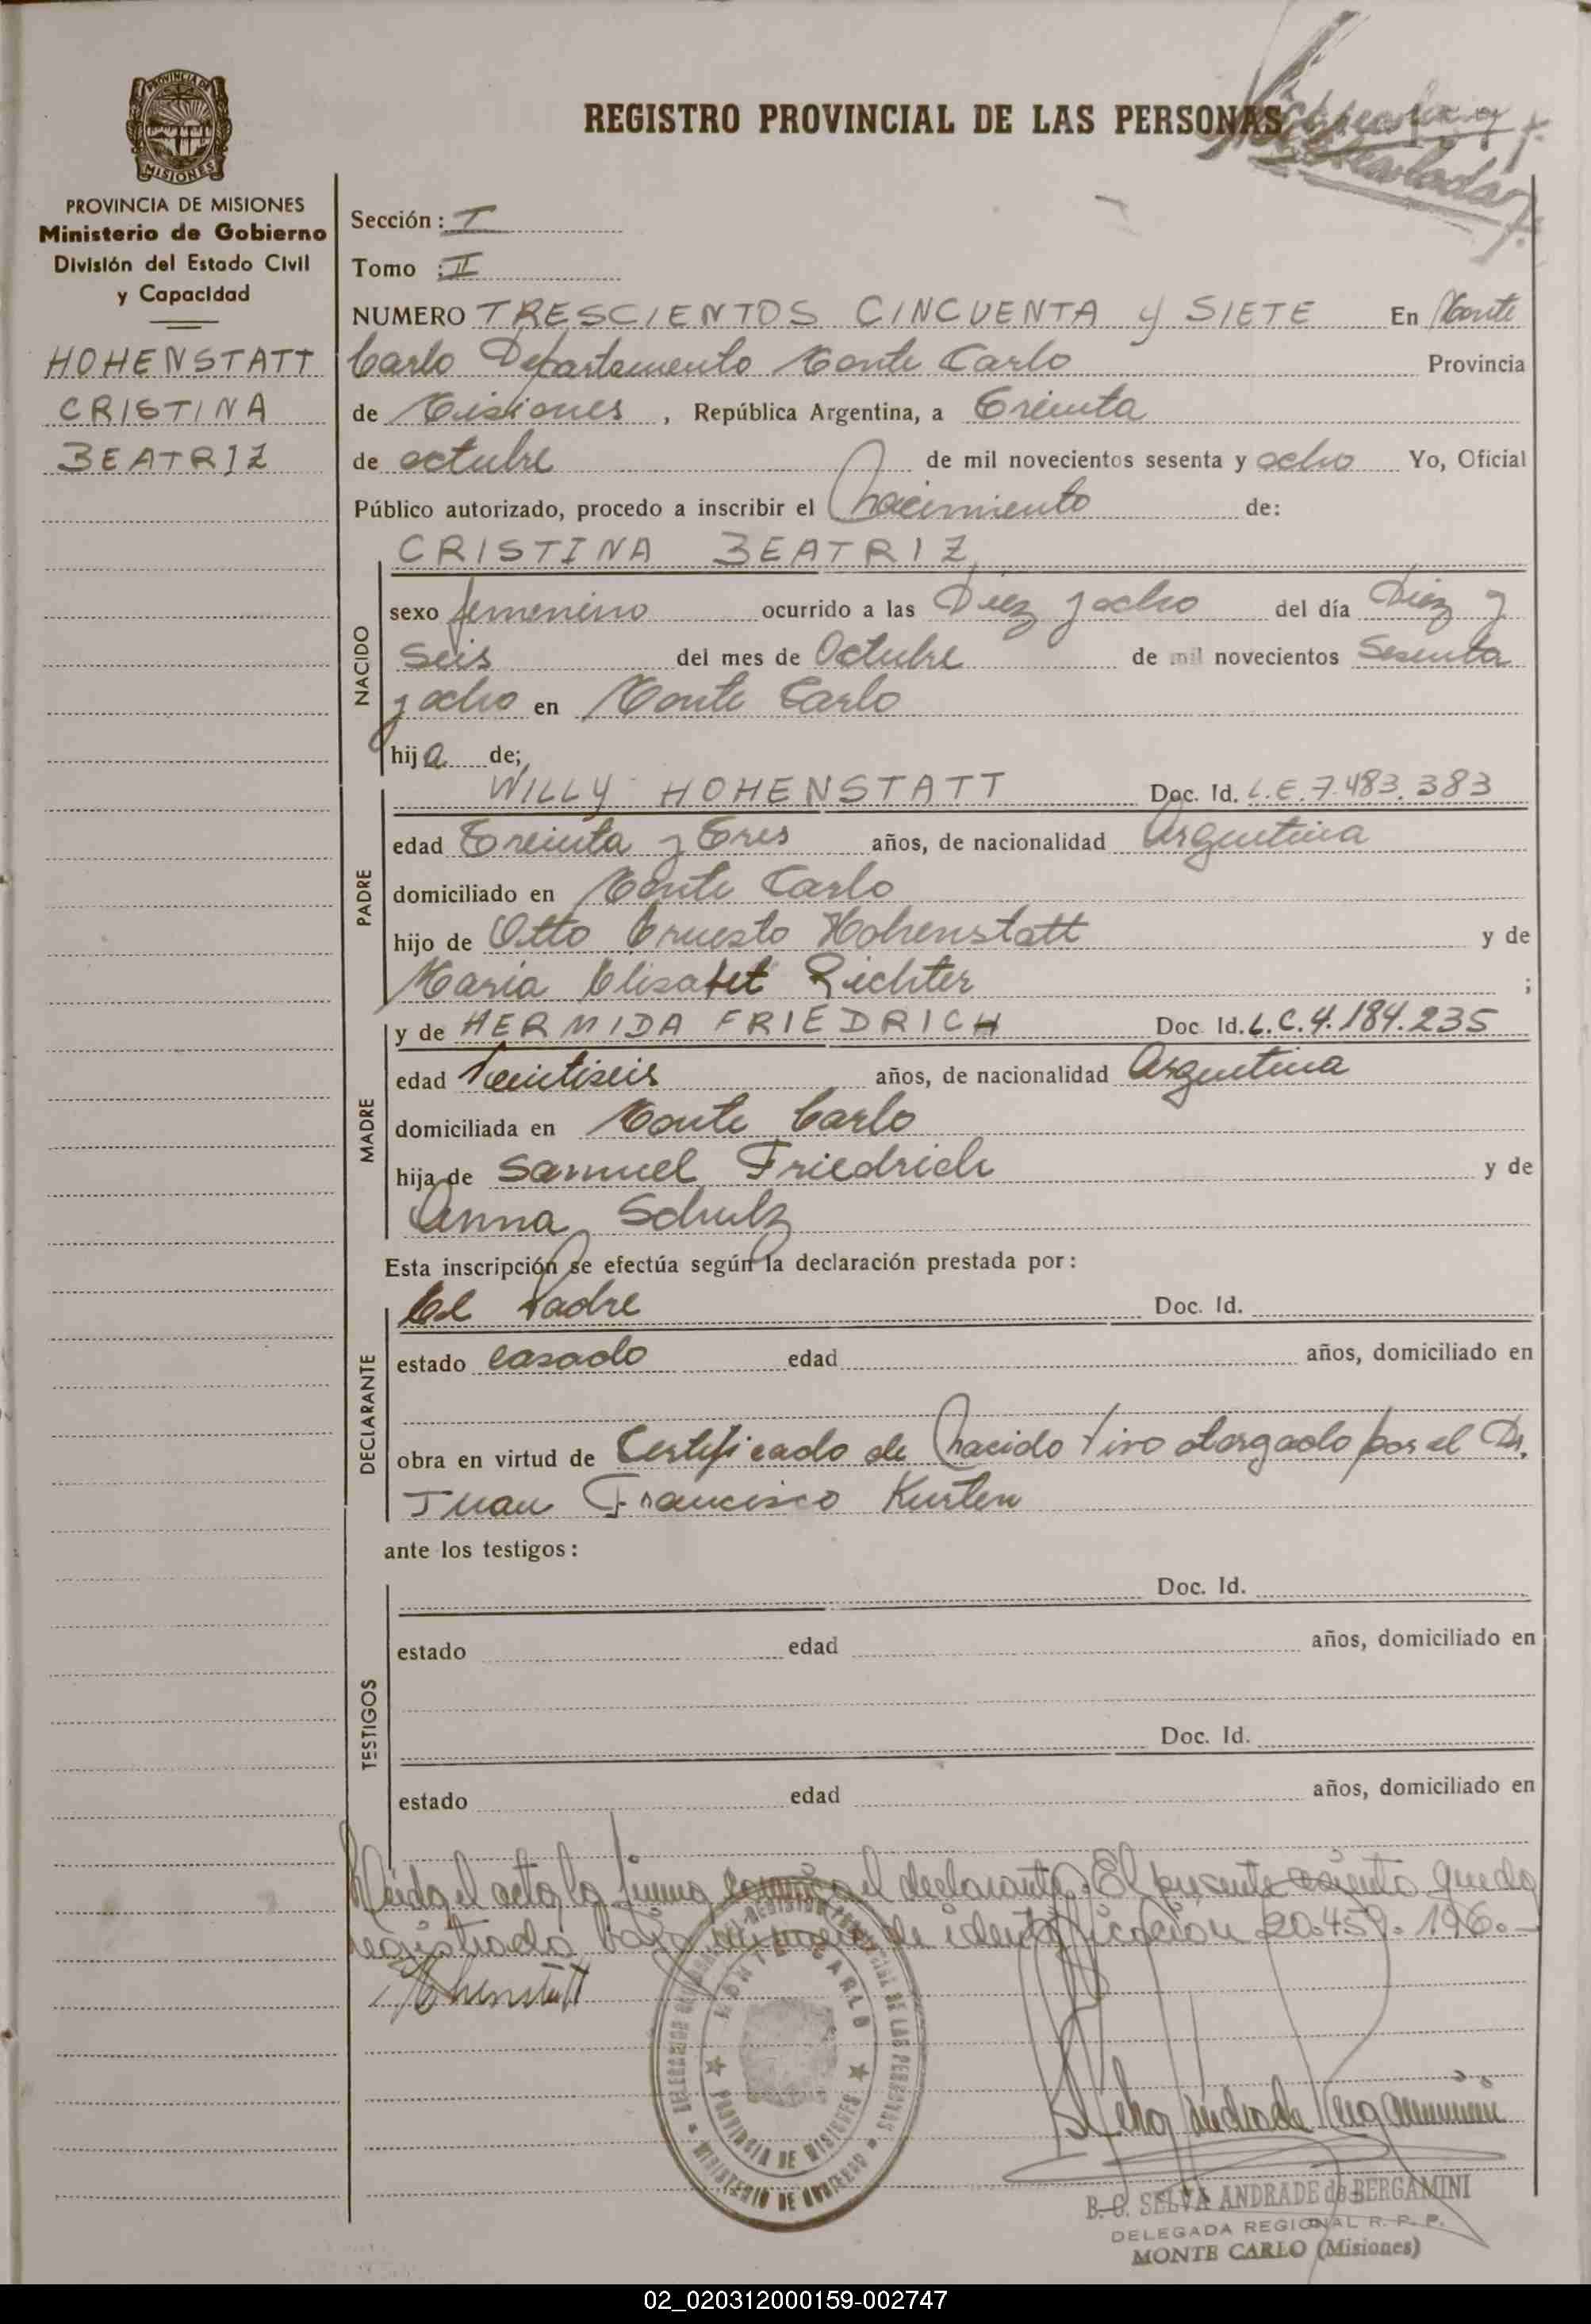 REGISTRO PROVINCIAL DE LAS PERSONAS
PROVINCIA DE MISIONES
Ministerio de Gobierno
División del Estado Civil
y Capacidad
HOHENSTATT
CRISTINA
BEATRIZ
Sección: I
Tomo : II
NUMERO TRESCIENTOS CINCUENTA y SIETE En Monte
Carlo Departamento Monte Carlo Provincia
de Misiones, República Argentina, a Treinta
de octubre de mil novecientos sesenta y ocho Yo, Oficial
Público autorizado, procedo a inscribir el Nacimiento de:
CRISTINA BEATRIZ
NACIDO
sexo femenino ocurrido a las Diez y ocho del día Diez y
Seis del mes de Octubre de mil novecientos Sesenta
y ocho en Monte Carlo
hija de;
PADRE
WILLY HOHENSTATT Doc. Id. L.E. 7.483.383
edad Treinta y Tres años, de nacionalidad Argentina
domiciliado en Monte Carlo
hijo de Otto Ernesto Hohenstatt y de
Maria Elisabet Richter ;
MADRE
y de HERMIDA FRIEDRICH Doc. Id. L.C. 4.184.235
edad Veintiseis años, de nacionalidad Argentina
domiciliada en Monte Carlo
hija de Samuel Friedrich y de
Anna Schulz
Esta inscripción se efectúa según la declaración prestada por:
DECLARANTE
El Padre Doc. Id.
estado casado edad años, domiciliado en
obra en virtud de Certificado de Nacido Vivo otorgado por el Dr.
Juan Francisco Kurten
ante los testigos:
TESTIGOS
Doc. Id.
estado edad años, domiciliado en
Doc. Id.
estado edad años, domiciliado en
Leida el acta la firma conmigo el declarante. El presente asiento queda
registrado bajo número de identificación 20.459.196.-
Hohenstatt
MONTE CARLO
PROVINCIA DE MISIONES
MINISTERIO DE GOBIERNO
B. C. SELVA ANDRADE de BERGAMINI
DELEGADA REGIONAL R. P. P.
MONTE CARLO (Misiones)
02_020312000159-002747